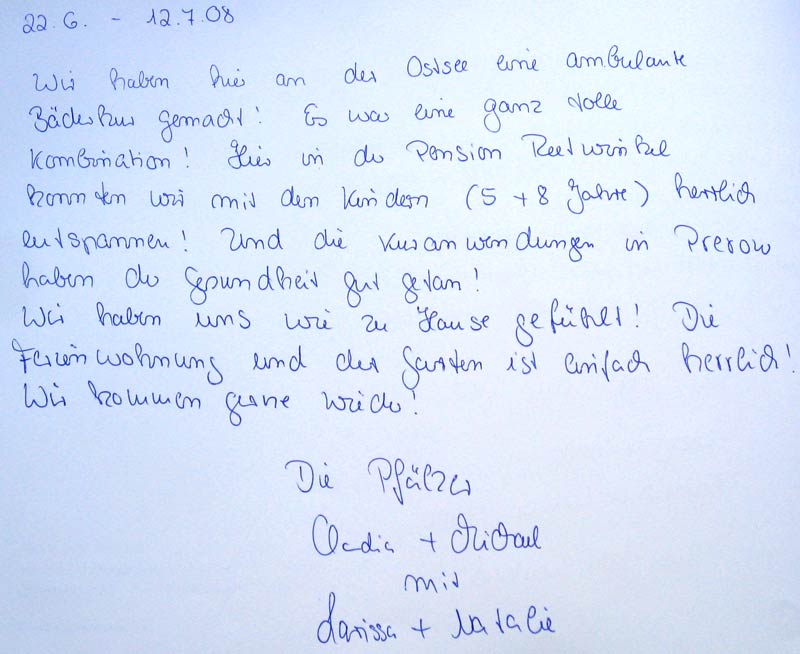 22.6. - 12.7.08
Wir haben hier an der Ostsee eine ambulante
Bäderkur gemacht! Es war eine ganz tolle
Kombination! Hier in der Pension Reetwinkel
konnten wir mit den Kindern (5 + 8 Jahre) herrlich
entspannen! Und die Kuranwendungen in Prerow
haben der Gesundheit gut getan!
Wir haben uns wie zu Hause gefühlt! Die
Ferienwohnung und der Garten ist einfach herrlich!
Wir kommen gerne wieder!
Die Pfälzer
Claudia + Michael
mit
Larissa + Natalie